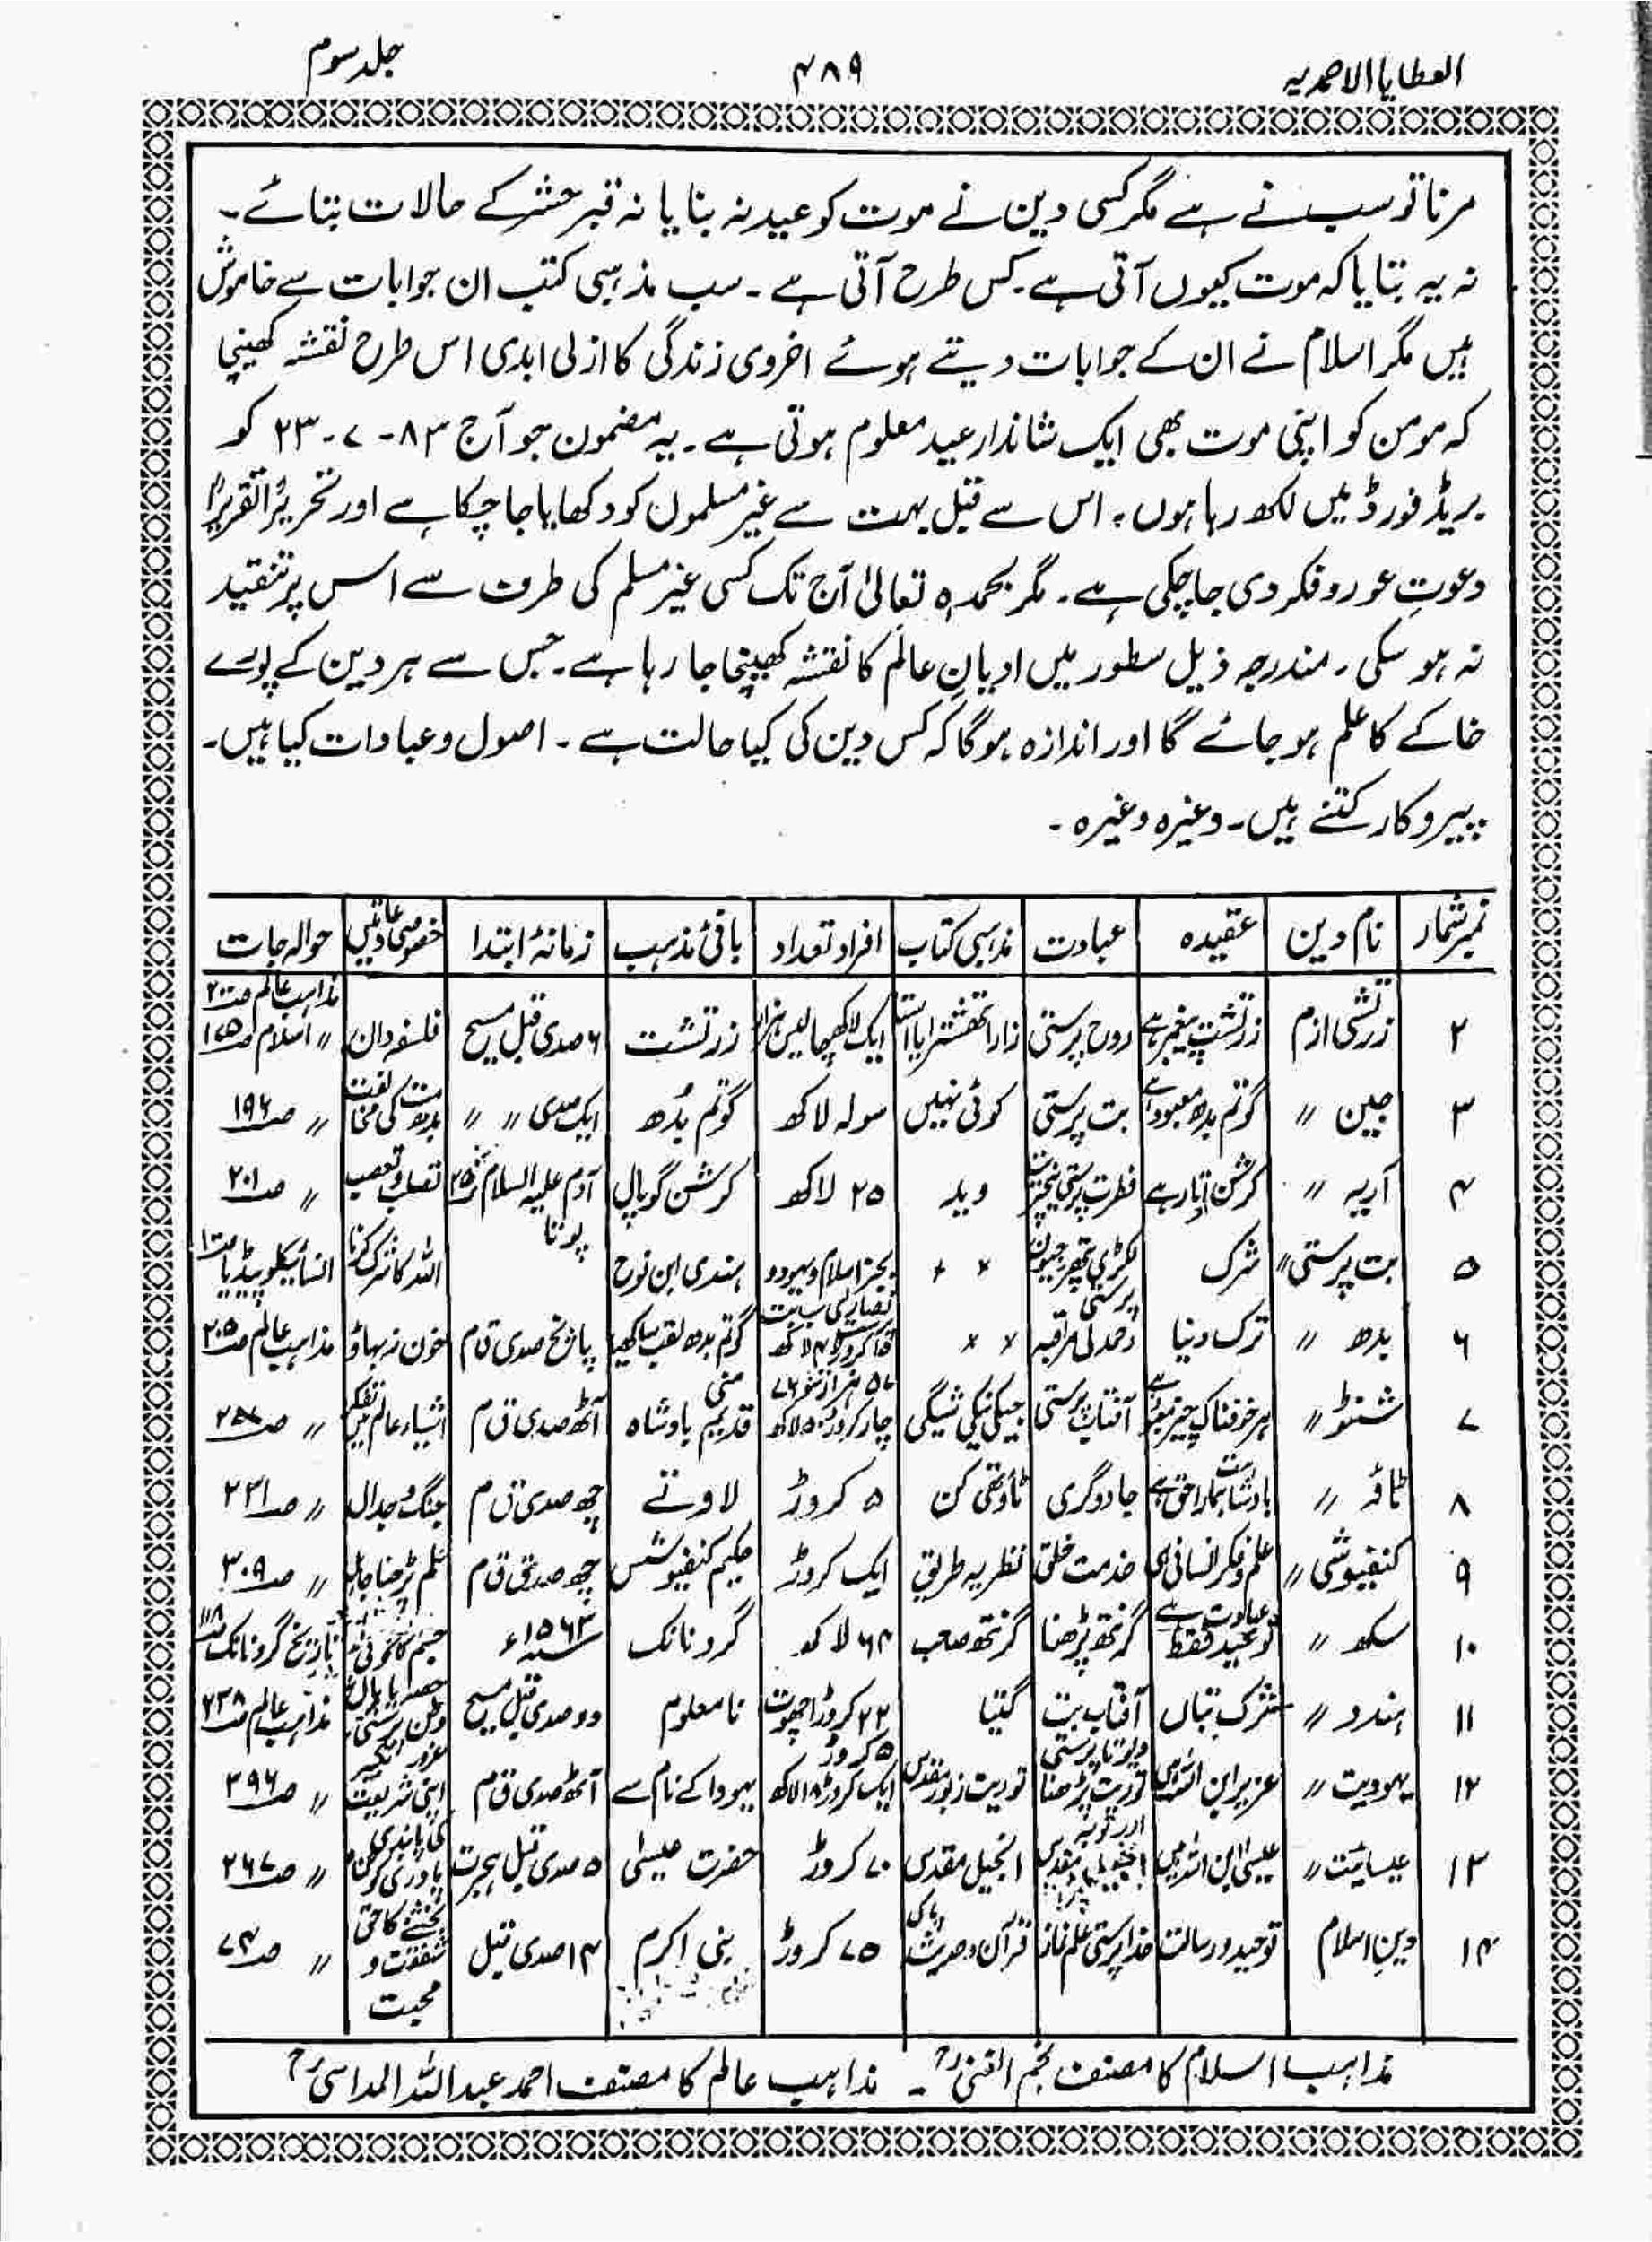 العطایا الاحمدیہ
۴۸۹
جلد سوم
مرنا تو سب نے ہے مگر کسی دین نے موت کو عید نہ بنایا نہ قبر حشر کے حالات بتائے۔
نہ یہ بتایا کہ موت کیوں آتی ہے۔ کس طرح آتی ہے۔ سب مذہبی کتب ان جوابات سے خاموش
ہیں مگر اسلام نے ان کے جوابات دیتے ہوئے اخروی زندگی کا ازلی ابدی اس طرح نقشہ کھینچا
کہ مومن کو اپنی موت بھی ایک شاندار عید معلوم ہوتی ہے۔ یہ مضمون جو آج ۸۳-۷-۲۳ کو
بریڈ فورڈ میں لکھ رہا ہوں، اس سے قبل بہت سے غیر مسلموں کو دکھایا جا چکا ہے اور تحریراً تقریراً
دعوتِ غور و فکر دی جا چکی ہے۔ مگر بحمدہ تعالیٰ آج تک کسی غیر مسلم کی طرف سے اس پر تنقید
نہ ہو سکی۔ مندرجہ ذیل سطور میں ادیانِ عالم کا نقشہ کھینچا جا رہا ہے۔ جس سے ہر دین کے پورے
خاکے کا علم ہو جائے گا اور اندازہ ہو گا کہ کس دین کی کیا حالت ہے۔ اصول و عبادات کیا ہیں۔
پیرو کار کتنے ہیں۔ وغیرہ وغیرہ۔
نمبر شمار نام دین عقیدہ عبادت مذہبی کتاب افراد تعداد بانیٔ مذہب زمانۂ ابتدا خصوصی عادتیں حوالہ جات
۲ زرتشی ازم زرتشت پیغمبر ہے روح پرستی ایک لاکھ چالیس ہزار زرتشت ۶ صدی قبل مسیح فلسفہ دان مذاہب عالم صـ۲۰ // اسلام صـ۱۷۵
۳ جین // گوتم بدھ معبود ہے بت پرستی کوئی نہیں سولہ لاکھ گوتم بدھ ایک صدی // // بدھ مت کی مخالفت // صـ۱۹۶
۴ آریہ // کرشن اوتار ہے فطرت پرستی وید ۲۵ لاکھ کرشن گوپال آدم علیہ السلام تعصب // صـ۲۰۱
۵ بت پرستی // شرک لکڑی پتھر حیوان پرستی × × بجز اسلام و یہود و نصاریٰ ہندی ابن نوح اللہ کا شرک کرنا انسائیکلوپیڈیا
۶ بدھ // ترک دنیا رحمدلی مراقبہ × × گوتم بدھ لقب ساکھیا منی پانچ صدی ق م خون نہ بہاؤ مذاہب عالم صـ۲۰۵
۷ شنٹو // ہر خوفناک چیز معبود ہے آفتاب پرستی چار کروڑ ۵۰ لاکھ قدیم بادشاہ آٹھ صدی ق م اشیاء عالم میں تفکر //
۸ ٹاؤ // بادشاہت ہمارا حق ہے جادوگری ٹاؤتھی کن ۵ کروڑ لاوتے چھ صدی ق م جنگ و جدال // صـ۲۳۱
۹ کنفیوشی // علم و فکر انسانی ہی عبادت ہے خدمت خلق نظریہ طریق ایک کروڑ حکیم کنفیوشس چھ صدی ق م // صـ۳۰۹
۱۰ سکھ // توحید فقط گرنتھ پڑھنا گرنتھ صاحب ۶۴ لاکھ گرونانک ۱۵۶۳ء تاریخ گرونانک صـ۱۱۸
۱۱ ہندو // شرک بتاں آفتاب بت دیوتا پرستی گیتا ۲۲ کروڑ اچھوت ۵ کروڑ نامعلوم دو صدی قبل مسیح وطن پرستی غرور مذاہب عالم صـ۲۳۸
۱۲ یہودیت // عزیر ابن اللہ ہیں توریت پڑھنا اور توبہ توریت زبور مقدس ایک کروڑ ۱۸ لاکھ یہودا کے نام سے آٹھ صدی ق م اپنی شریعت کی پابندی // صـ۳۹۶
۱۳ عیسائیت // عیسیٰ ابن اللہ ہیں انجیل مقدس ۷۰ کروڑ حضرت عیسیٰ ۵ صدی قبل ہجرت پادری کو گناہ بخشنے کا حق // صـ۲۶۷
۱۴ دین اسلام توحید و رسالت خدا پرستی علم نماز قرآن و حدیث پاک ۷۵ کروڑ نبی اکرم ۱۴ صدی قبل شفقت و محبت // صـ۷۴
مذاہب اسلام کا مصنف نجم الغنی۔ مذاہب عالم کا مصنف احمد عبداللہ المداسی